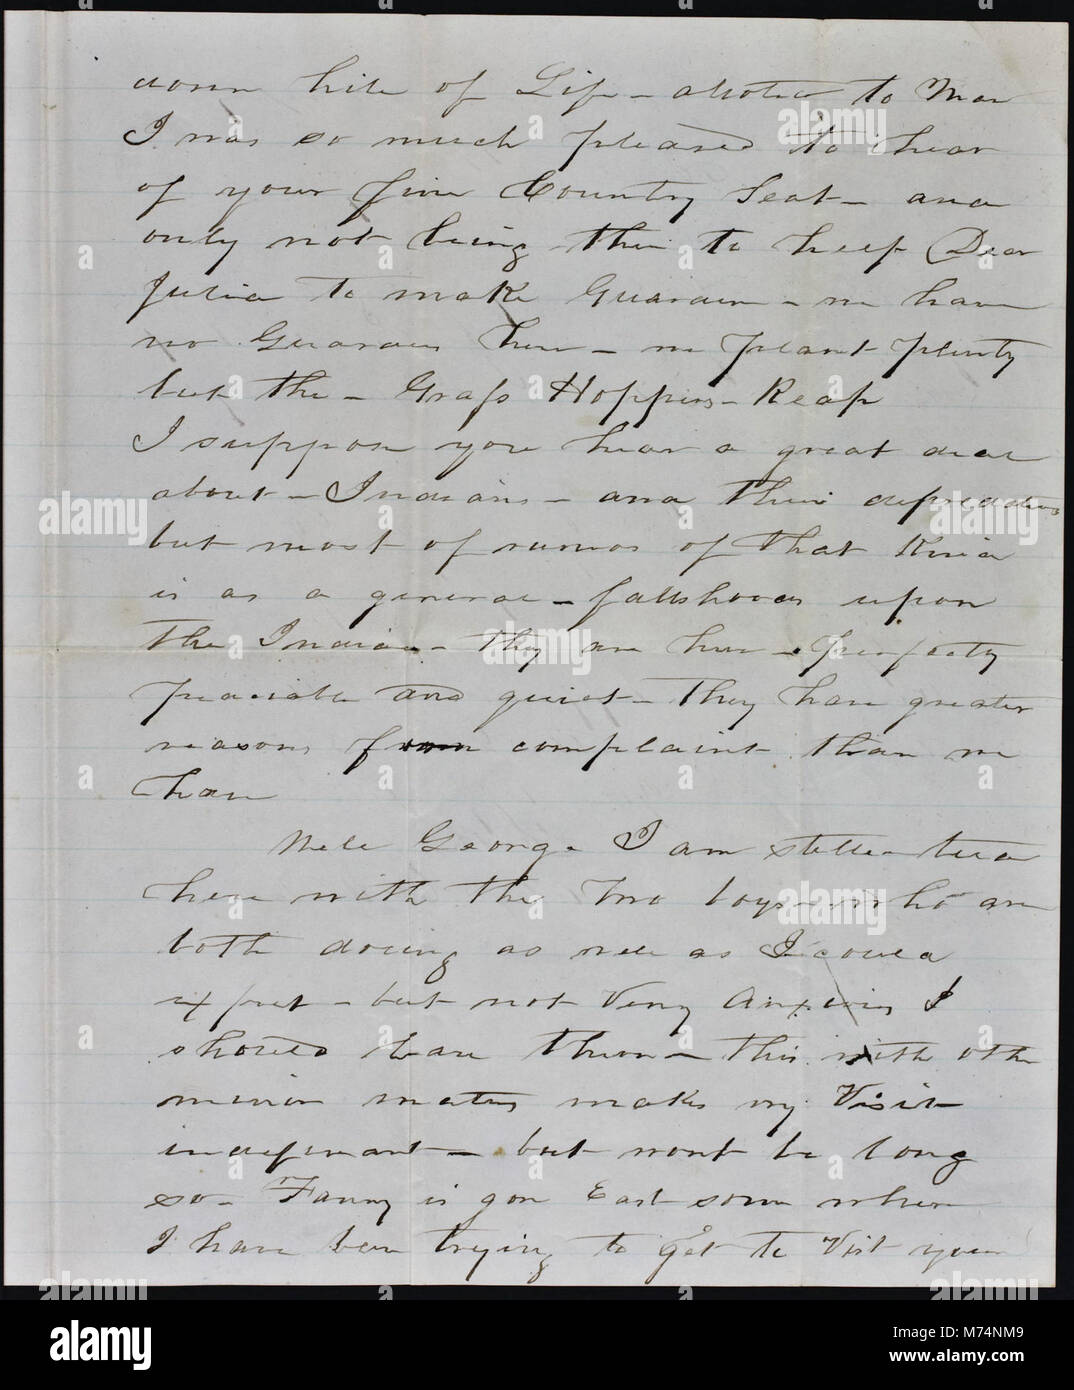 down hill of Life - aloted to Man
I was so much pleased to hear
of your fine Country Seat - and
only not being there to help Dear
Julia to make Guarden - we have
no Guardens here - we plant plenty
but the - Grass Hoppers - Reap
I suppose you hear a great deal
about - Indians - and their
but most of rumors of that Kind
is as a general - falshoods upon
the Indians - they are here - perfectly
peacable and quiet - They have greater
reasons for complaint than we
have
Well George I am still tied
here with the Two boys - who are
both doing as well as I could
expect - but not Very Anxious I
should leave them - this with other
minor maters makes my Visit
- but wont be long
so - Fanny is gon East som where
I have ben trying to get to Visit your
alamy stock photo
a
alamy
alamy
M74NM9
www.alamy.com